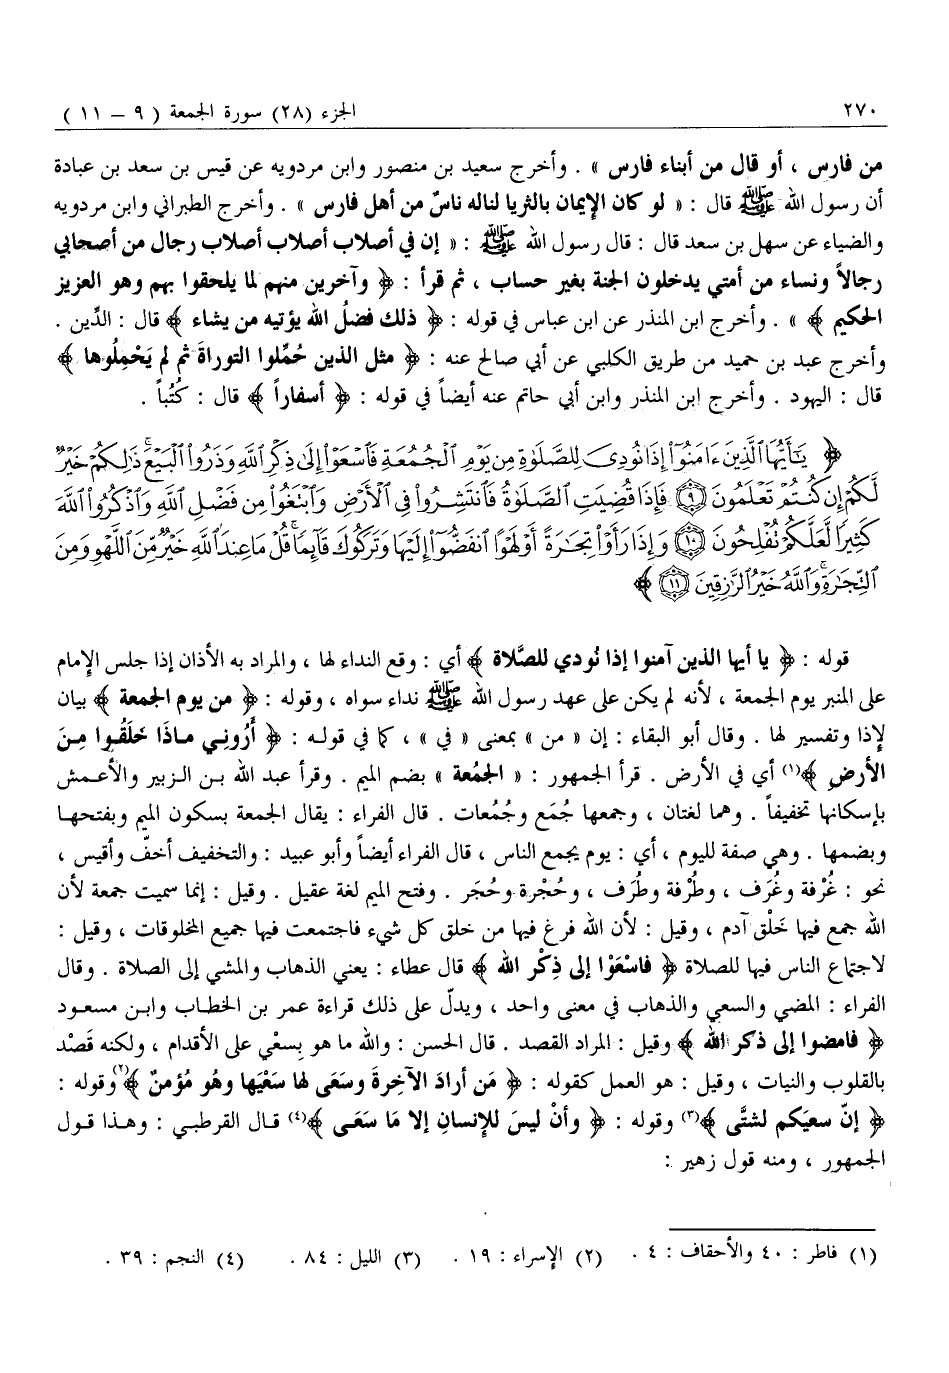 ٢٧٠ الجزء (٢٨) سورة الجمعة ( ٩ – ١١ )
من فارس ، أو قال من أبناء فارس » . وأخرج سعيد بن منصور وابن مردويه عن قيس بن سعد بن عبادة
أن رسول الله ﷺ قال : « لو كان الإيمان بالثريا لناله ناسٌ من أهل فارس » . وأخرج الطبراني وابن مردويه
والضياء عن سهل بن سعد قال : قال رسول الله ﷺ : « إن في أصلاب أصلاب أصلاب رجال من أصحابي
رجالاً ونساء من أمتي يدخلون الجنة بغير حساب ، ثم قرأ : ﴿ وآخرين منهم لما يلحقوا بهم وهو العزيز
الحكيم ﴾ » . وأخرج ابن المنذر عن ابن عباس في قوله : ﴿ ذلك فضلُ الله يؤتيه من يشاء ﴾ قال : الدِّين .
وأخرج عبد بن حميد من طريق الكلبي عن أبي صالح عنه : ﴿ مثل الذين حُمِّلوا التوراةَ ثم لم يَحْمِلُوها ﴾
قال : اليهود . وأخرج ابن المنذر وابن أبي حاتم عنه أيضاً في قوله : ﴿ أسفاراً ﴾ قال : كُتُباً .
﴿ يَٰٓأَيُّهَا ٱلَّذِينَ ءَامَنُوٓا۟ إِذَا نُودِىَ لِلصَّلَوٰةِ مِن يَوْمِ ٱلْجُمُعَةِ فَٱسْعَوْا۟ إِلَىٰ ذِكْرِ ٱللَّهِ وَذَرُوا۟ ٱلْبَيْعَ ۚ ذَٰلِكُمْ خَيْرٌ
لَّكُمْ إِن كُنتُمْ تَعْلَمُونَ ٩ فَإِذَا قُضِيَتِ ٱلصَّلَوٰةُ فَٱنتَشِرُوا۟ فِى ٱلْأَرْضِ وَٱبْتَغُوا۟ مِن فَضْلِ ٱللَّهِ وَٱذْكُرُوا۟ ٱللَّهَ
كَثِيرًا لَّعَلَّكُمْ تُفْلِحُونَ ١٠ وَإِذَا رَأَوْا۟ تِجَٰرَةً أَوْ لَهْوًا ٱنفَضُّوٓا۟ إِلَيْهَا وَتَرَكُوكَ قَآئِمًا ۚ قُلْ مَا عِندَ ٱللَّهِ خَيْرٌ مِّنَ ٱللَّهْوِ وَمِنَ
ٱلتِّجَٰرَةِ ۚ وَٱللَّهُ خَيْرُ ٱلرَّٰزِقِينَ ١١ ﴾
قوله : ﴿ يا أيها الذين آمنوا إذا نُودي للصَّلاة ﴾ أي : وقع النداء لها ، والمراد به الأذان إذا جلس الإمام
على المنبر يوم الجمعة ، لأنه لم يكن على عهد رسول الله ﷺ نداء سواه ، وقوله : ﴿ من يوم الجمعة ﴾ بيان
لإذا وتفسير لها . وقال أبو البقاء : إن « من » بمعنى « في » ، كما في قوله : ﴿ أَرُوني ماذَا خَلَقُوا مِنَ
الأرضِ ﴾(١) أي في الأرض . قرأ الجمهور : « الجُمُعة » بضم الميم . وقرأ عبد الله بن الزبير والأعمش
بإسكانها تخفيفاً . وهما لغتان ، وجمعها جُمَع وجُمُعات . قال الفراء : يقال الجمعة بسكون الميم وبفتحها
وبضمها . وهي صفة لليوم ، أي : يوم يجمع الناس ، قال الفراء أيضاً وأبو عبيد : والتخفيف أخفّ وأقيس ،
نحو : غُرْفة وغُرَف ، وطُرْفة وطُرَف ، وحُجْرة وحُجَر . وفتح الميم لغة عقيل . وقيل : إنما سميت جمعة لأن
الله جمع فيها خَلْق آدم ، وقيل : لأن الله فرغ فيها من خلق كل شيء فاجتمعت فيها جميع المخلوقات ، وقيل :
لاجتماع الناس فيها للصلاة ﴿ فاسْعَوْا إلى ذِكْر الله ﴾ قال عطاء : يعني الذهاب والمشي إلى الصلاة . وقال
الفراء : المضي والسعي والذهاب في معنى واحد ، ويدلّ على ذلك قراءة عمر بن الخطاب وابن مسعود
﴿ فامضوا إلى ذكر الله ﴾ وقيل : المراد القصد . قال الحسن : والله ما هو بِسعْي على الأقدام ، ولكنه قَصْد
بالقلوب والنيات ، وقيل : هو العمل كقوله : ﴿ مَن أرادَ الآخِرةَ وسَعَى لها سَعْيَها وهُو مُؤمنٌ ﴾(٢) وقوله :
﴿ إنّ سعيَكم لشتَّى ﴾(٣) وقوله : ﴿ وأنْ ليسَ للإنسانِ إلا مَا سَعَى ﴾(٤) قال القرطبي : وهذا قول
الجمهور ، ومنه قول زهير :
(١) فاطر : ٤٠ والأحقاف : ٤ . (٢) الإسراء : ١٩ . (٣) الليل : ٨٤ . (٤) النجم : ٣٩ .